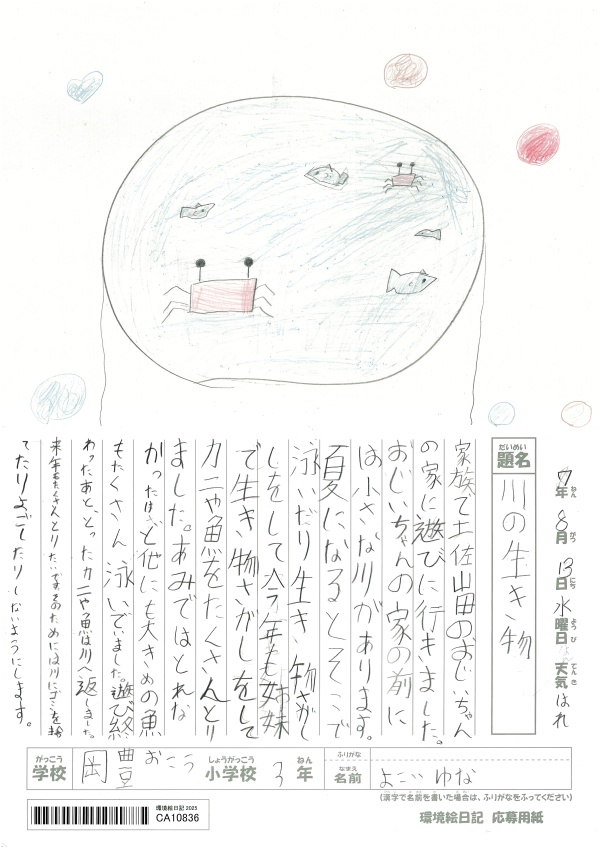 7年ねん 8月がつ 13日にち 水曜日ようび 天気てんき はれ
題名だいめい 川の生き物
家族で土佐山田のおじいちゃん
の家に遊びに行きました。
おじいちゃんの家の前に
は小さな川があります。
夏になるとそこで
泳いだり生き物さがし
しをして今年も姉妹
で生き物さがしをして
カニや魚をたくさんとり
ました。あみではとれな
かったけど他にも大きめの魚
もたくさん泳いでいました。遊び終
わったあと、とったカニや魚は川へ返しました。
来年もたくさんとりたい
てたりよごしたりしないようにします。
学校がっこう 岡豊 おこう 小学校しょうがっこう 3年ねん
ふりがな
名前なまえ よこい ゆな
(漢字で名前を書いた場合は、ふりがなをふってください)
環境絵日記 2025
CA10836
環境絵日記 応募用紙